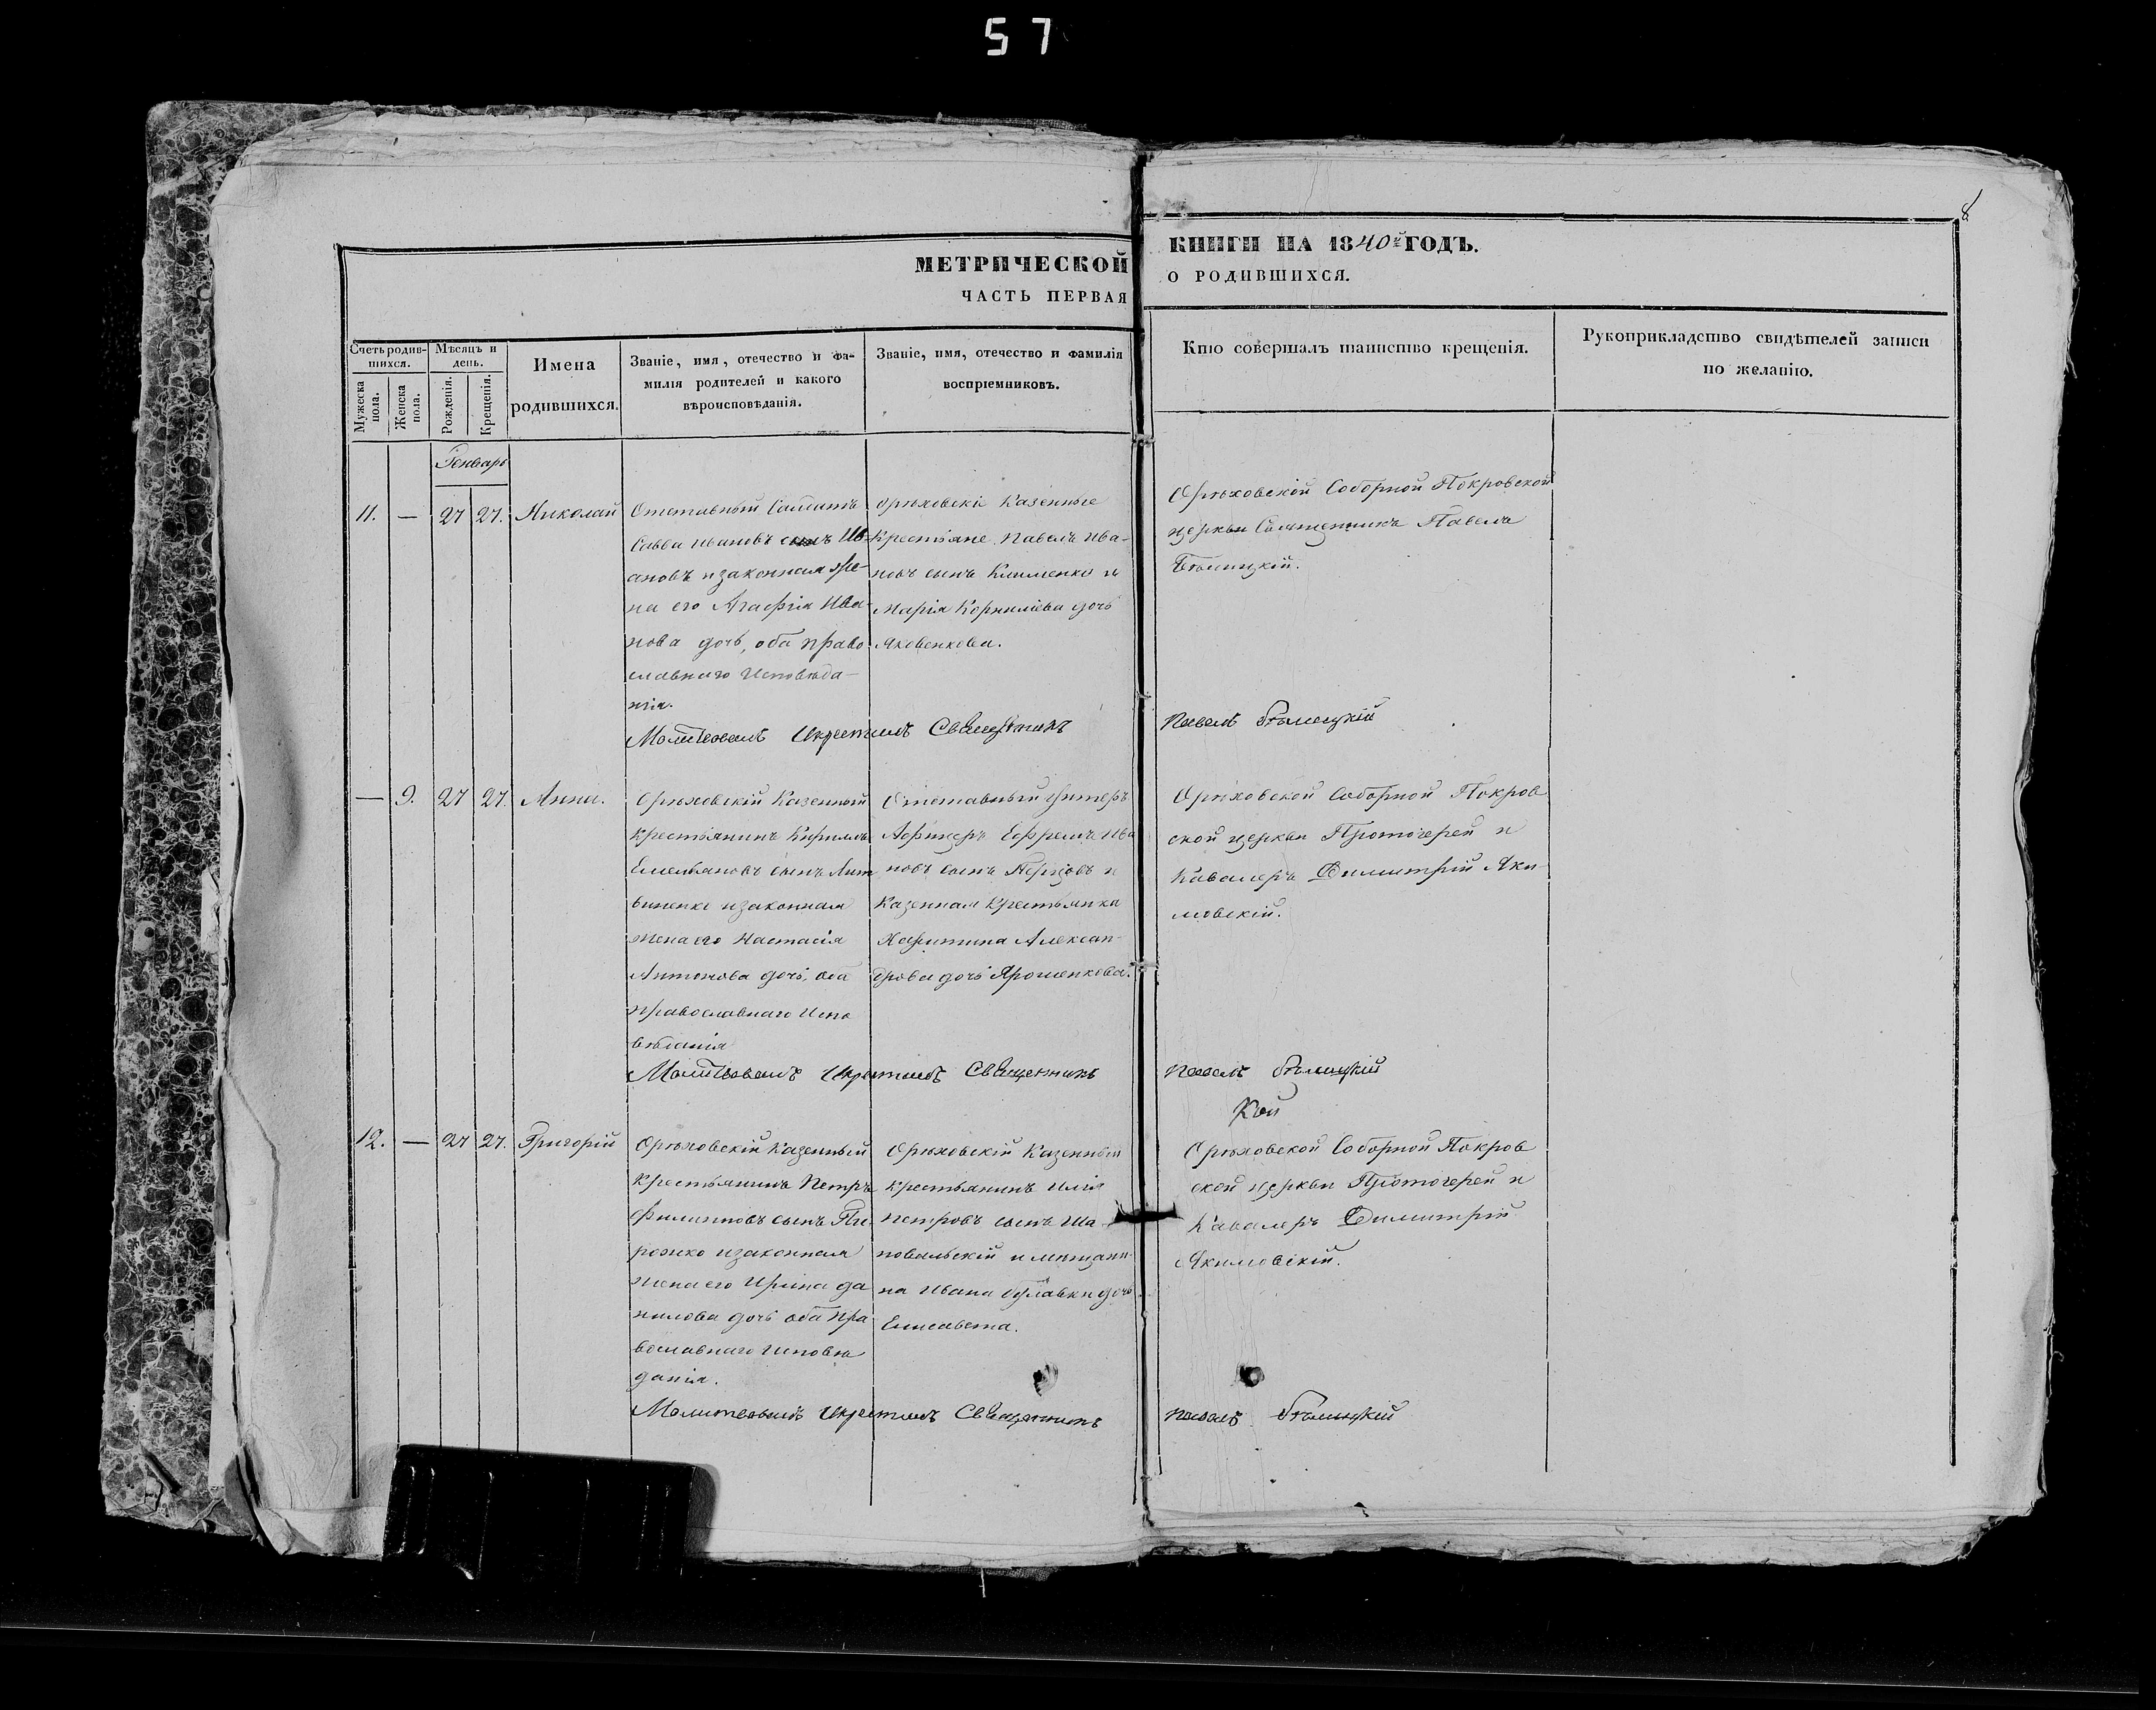 57
8
МЕТРИЧЕСКОЙ КНИГИ НА 1840й ГОДЪ.
ЧАСТЬ ПЕРВАЯ О РОДИВШИХСЯ.
Счетъ родив-
шихся.
Мужеска пола.
Женска пола.
Мѣсяцъ и
день.
Рожденія.
Крещенія.
Имена
родившихся.
Званіе, имя, отечество и фа-
милія родителей и какого
вѣроисповѣданія.
Званіе, имя, отечество и фамилія
воспріемниковъ.
Кто совершалъ таинство крещенія.
Рукоприкладство свидѣтелей записи
по желанію.
Генварь
11. — 27 27. Николай
Отставный Солдатъ
Савва Ивановъ сынъ Ив-
ановъ изаконная же-
на его Агафія Ива-
нова дочь, оба право
славнаго Исповѣда-
нія.
Орѣховскіе Казенные
Крестьяне Павелъ Ива-
новъ сынъ Клименко и
Марія Корниліева дочь
Яковенкова.
Орѣховской Соборной Покровской
церкви Священникъ Павелъ
Бѣлицкій.
Молитвовалъ Икрестилъ Священникъ Павелъ Бѣлицкій
— 9. 27 27. Анна.
Орѣховскій Казенный
Крестьянинъ Кириллъ
Емельяновъ сынъ Лит
виненко изаконная
жена его Настасія
Антонова дочь, оба
православнаго Испо
вѣданія
Отставный Унтеръ
Афицеръ Ефремъ Ива
новъ сынъ Перцовъ и
Казенная Крестьянка
Харитина Алексан-
дрова дочь Ярошенкова.
Орѣховской Соборной Покров
ской церкви Протоіерей и
Кавалеръ Димитрій Аки
мовскій.
Молитвовалъ Икрестилъ Священникъ Павелъ Бѣлицкій
12. — 27 27. Григорій
Орѣховскій Казенный
Крестьянинъ Петръ
Филиповъ сынъ
рожко изаконная
жена его Ирина Да
нилова дочь оба пра
вославнаго Исповѣ
данія.
Орѣховскій Казенный
Крестьянинъ Илія
Петровъ сынъ Ша-
повальскій и мѣщани-
на Ивана Булавки дочь
Елисавета.
Орѣховской Соборной Покров
ской церкви Протоіерей и
Кавалеръ Димитрій
Якимовскій.
Молитвовалъ Икрестилъ Священникъ Павелъ Бѣлицкій